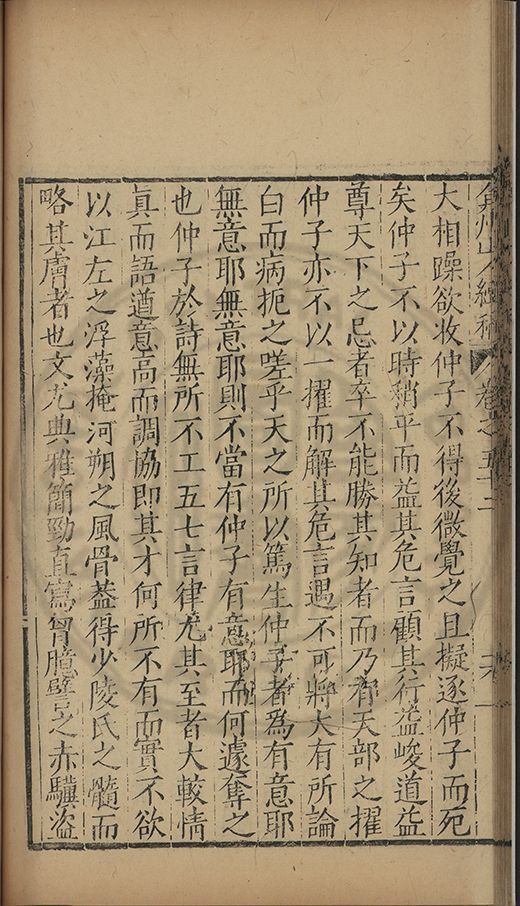 弇州山人續稿 卷之五十二
大相躁欲收仲子不得後微覺之且擬逐仲子而死
矣仲子不以時稍平而益其危言顧其行益峻道益
尊天下之忌者卒不能勝其知者而乃有天部之擢
仲子亦不以一擢而解其危言遇不可將大有所論
白而病扼之嗟乎天之所以篤生仲子者為有意耶
無意耶無意耶則不當有仲子有意耶而何遽奪之
也仲子於詩無所不工五七言律尤其至者大較情
真而語遒意高而調協即其才何所不有而實不欲
以江左之浮藻掩河朔之風骨蓋得少陵氏之髓而
略其膚者也文尤典雅簡勁直寫胷臆譬之赤驥盜